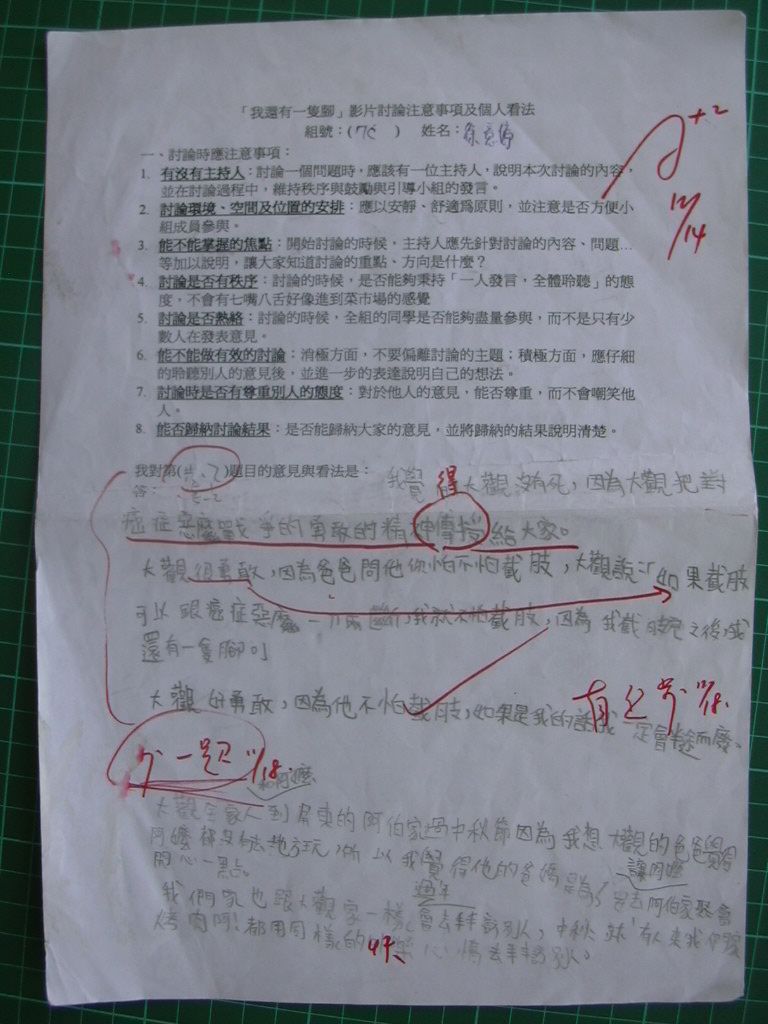 「我還有一隻腳」影片討論注意事項及個人看法
組號：(7C ) 姓名：
A+2
12/14
一、討論時應注意事項：
1. 有沒有主持人：討論一個問題時，應該有一位主持人，說明本次討論的內容，
並在討論過程中，維持秩序與鼓勵與引導小組的發言。
2. 討論環境、空間及位置的安排：應以安靜、舒適為原則，並注意是否方便小
組成員參與。
3. 能不能掌握的焦點：開始討論的時候，主持人應先針對討論的內容、問題…
等加以說明，讓大家知道討論的重點、方向是什麼？
4. 討論是否有秩序：討論的時候，是否能夠秉持「一人發言，全體聆聽」的態
度，不會有七嘴八舌好像進到菜市場的感覺
5. 討論是否熱絡：討論的時候，全組的同學是否能夠盡量參與，而不是只有少
數人在發表意見。
6. 能不能做有效的討論：消極方面，不要偏離討論的主題；積極方面，應仔細
的聆聽別人的意見後，並進一步的表達說明自己的想法。
7. 討論時是否有尊重別人的態度：對於他人的意見，能否尊重，而不會嘲笑他
人。
8. 能否歸納討論結果：是否能歸納大家的意見，並將歸納的結果說明清楚。
我對第( )題目的意見與看法是：
答： 我覺得大觀沒有死，因為大觀把對
癌症惡魔戰爭的勇敢的精神傳授給大家。
大觀很勇敢，因為爸爸問他你怕不怕截肢，大觀說：「如果截肢
可以跟癌症惡魔一刀兩斷，我就不怕截肢，因為我截肢完之後，我
還有一隻腳」
大觀好勇敢，因為他不怕截肢，如果是我的話我一定會半途而廢。
少一題 11/18
大觀全家人到屏東的阿伯家過中秋節因為我想大觀的爸爸覺得
阿嬤都沒有去地方玩，所以我覺得他的爸媽是為了 去阿伯家聚會
讓阿嬤
開心一點。
過年
我們家也跟大觀家一樣會去拜訪別人，中秋 有人來我們家
烤肉阿！都用同樣的快樂心情去拜訪別人。